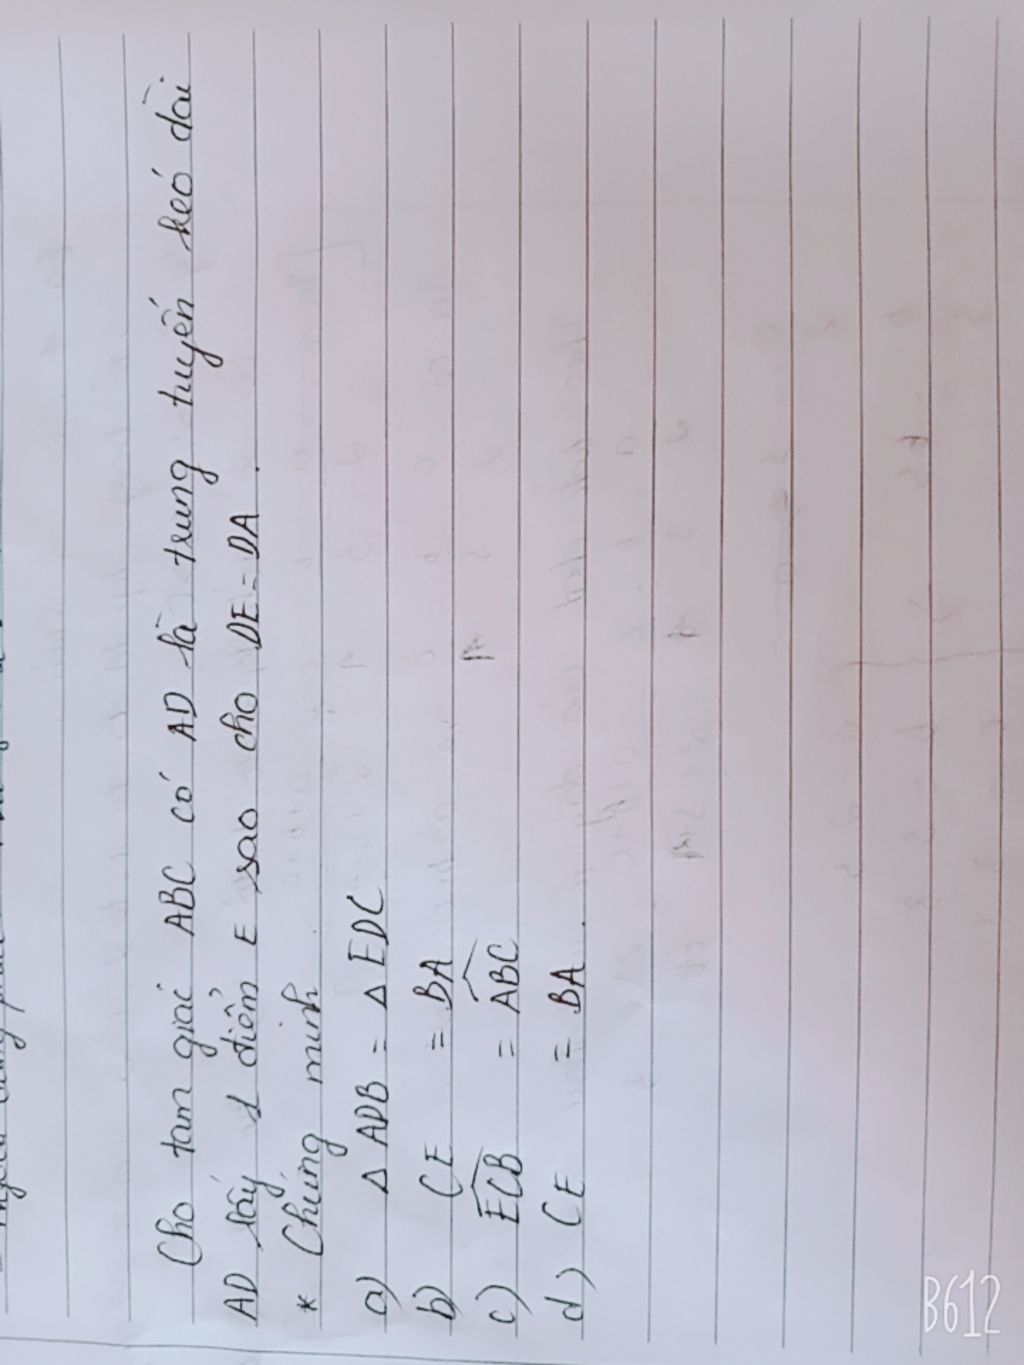 Cho tam giác ABC có AD là trung tuyến keó dài
AD lấy 1 điểm E sao cho DE = DA.
* Chứng minh
a) Δ ADB = Δ EDC
b) CE = BA
c) \widehat{ECB} = \widehat{ABC}
d) CE = BA.
B612